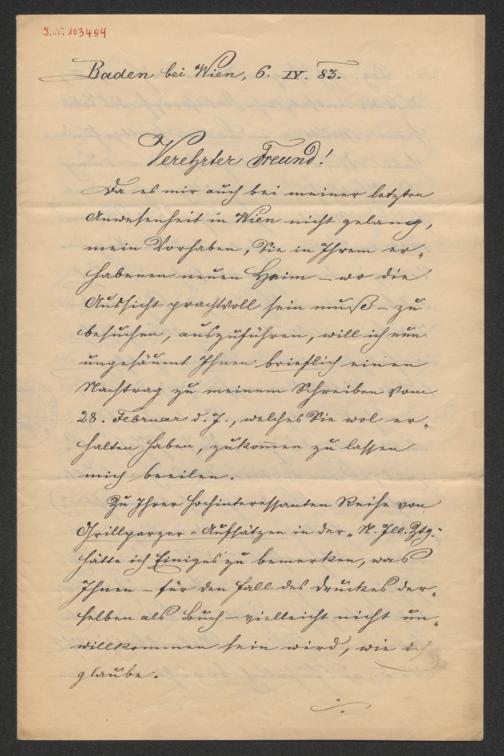 J. N. 103494
Baden bei Wien, 6. IV. 83.
Verehrter Freund!
Da es mir auch bei meiner letzten
Anwesenheit in Wien nicht gelang,
mein Vorhaben, Sie in Ihrem er-
habenen neuen Heim – wo die
Aussicht prachtvoll sein muß – zu
besuchen, auszuführen, will ich nun
ungesäumt Ihnen brieflich einen
Nachtrag zu meinem Schreiben vom
28. Februar d. J., welches Sie wol er-
halten haben, zukommen zu lassen
mich beeilen.
Zu Ihrer hochinteressanten Reihe von
Grillparzer-Aufsätzen in der „N. Ill. Ztg."
hätte ich Einiges zu bemerken, was
Ihnen – für den Fall des Druckes der-
selben als Buch – vielleicht nicht un-
willkommen sein wird, wie ich
glaube.